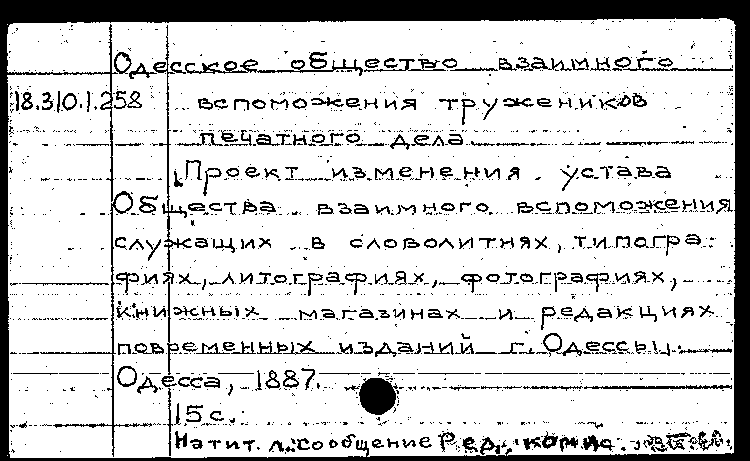 Одесское общество взаимного
18.310.1.258 вспоможения тружеников
печатного дела.
Проект изменения устава
Общества взаимного вспоможения
служащих в словолитнях, типогра-
фиях, литографиях, фотографиях,
книжных магазинах и редакциях
повременных изданий г. Одессы.
Одесса, 1887.
15 с.
На тит. л.: сообщение Ред. комис.